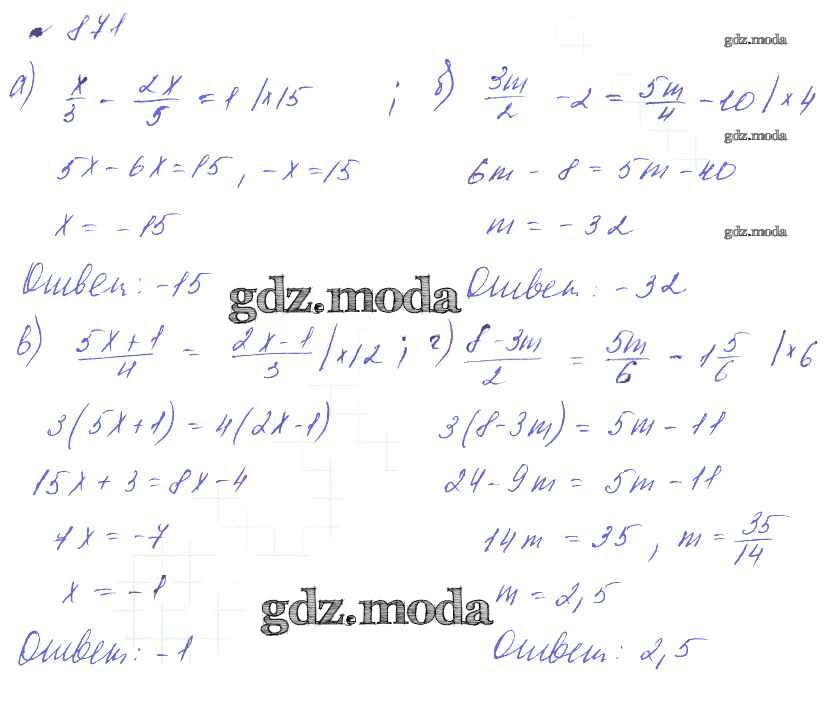 № 871
gdz.moda
а) x/3 - 2x/5 = 1 | ×15 ;
5x - 6x = 15, -x = 15
x = -15
Ответ: -15
б) 3m/2 - 2 = 5m/4 - 10 | ×4
gdz.moda
6m - 8 = 5m - 40
m = -32
gdz.moda
Ответ: -32
gdz.moda
в) 5x+1/4 = 2x-1/3 | ×12 ;
3(5x+1) = 4(2x-1)
15x + 3 = 8x - 4
7x = -7
x = -1
Ответ: -1
г) 8-3m/2 = 5m/6 - 1 5/6 | ×6
3(8-3m) = 5m - 11
24 - 9m = 5m - 11
14m = 35, m = 35/14
m = 2,5
gdz.moda
Ответ: 2,5